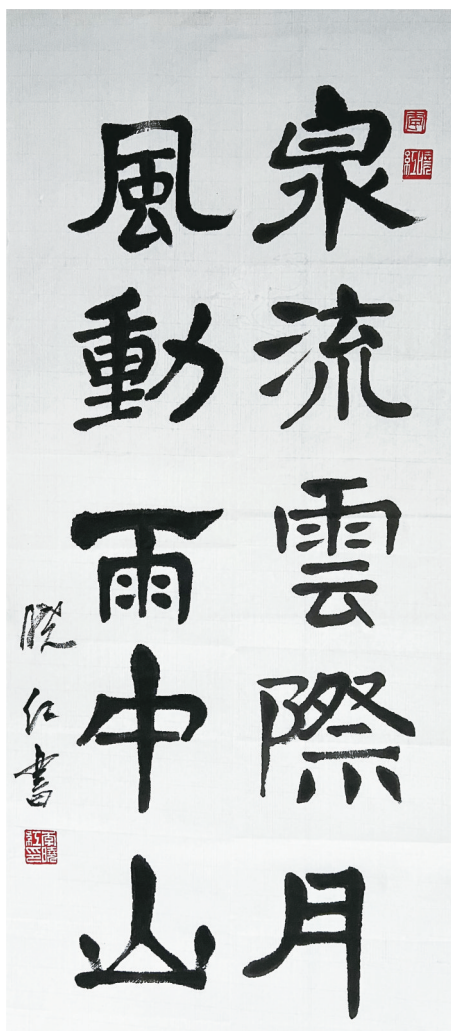 泉流雲際月
風動雨中山
晓红書